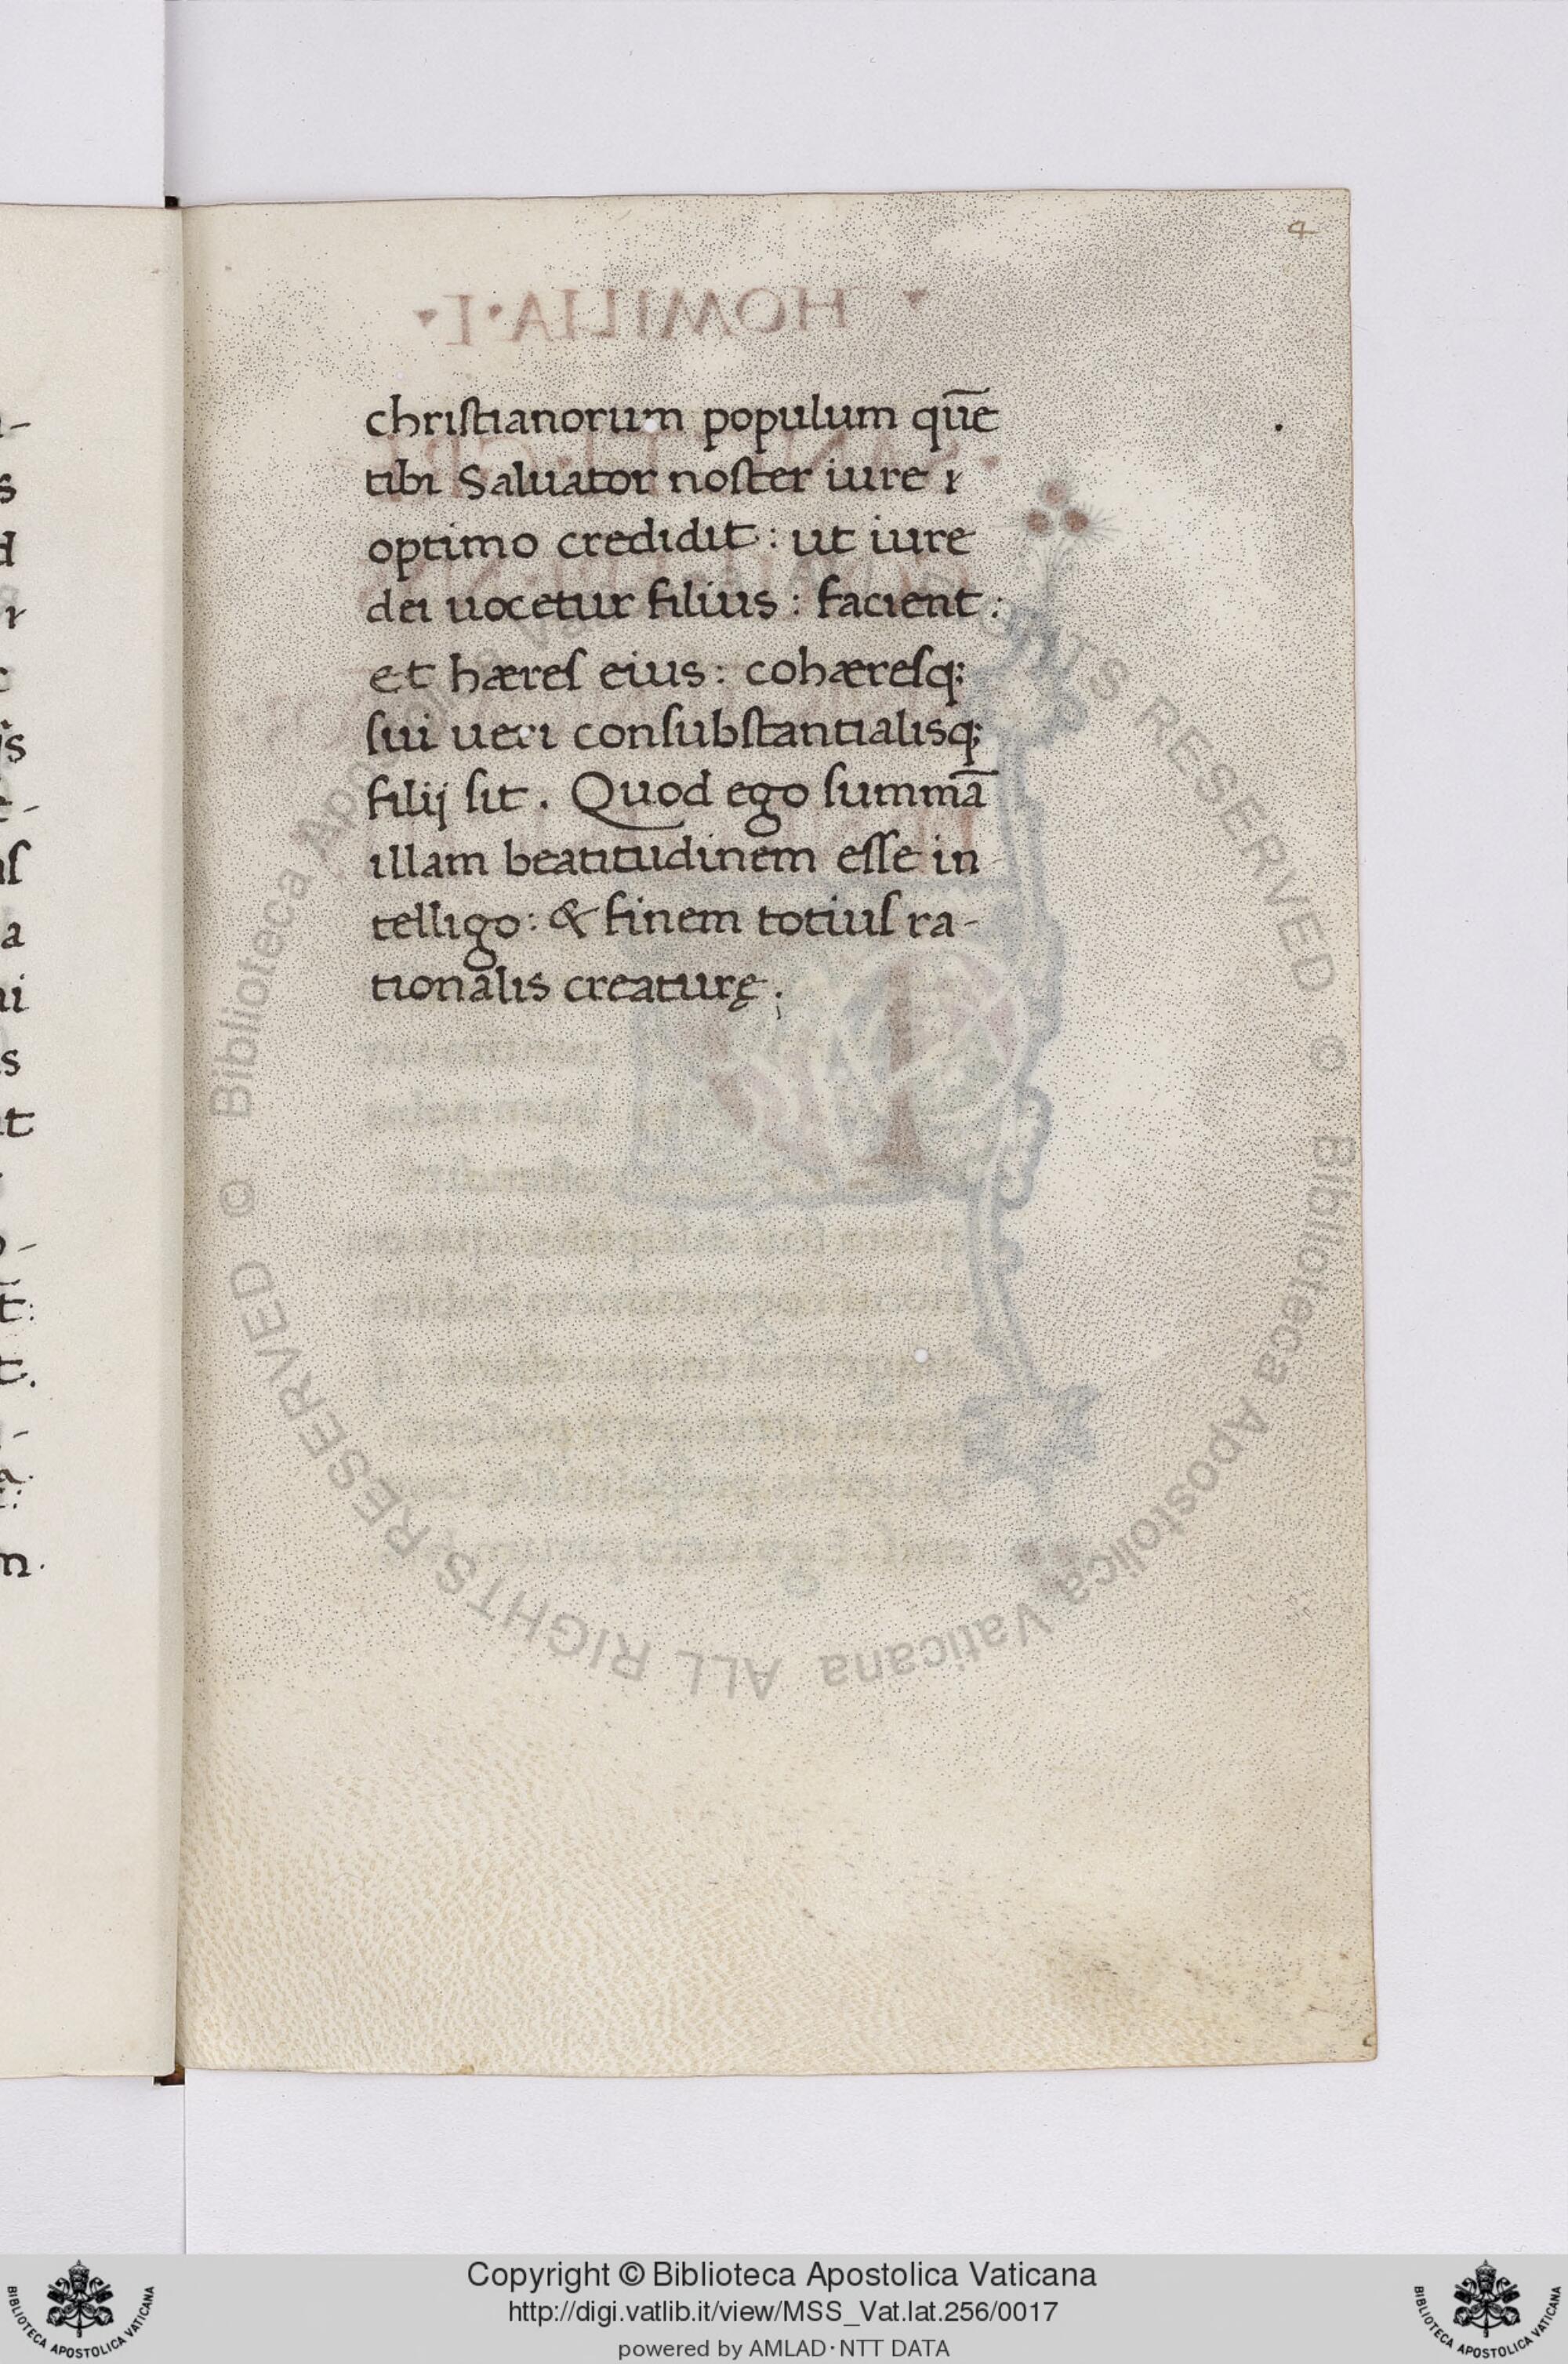 4
chriſtianorum populum quē
tibi Saluator noſter iure ı
optimo credidit : ut iure
dei uocetur filius : facient :
et hæreſ eius : cohæreſq;
ſui ueri conſubſtantialisq;
filij ſit . Quod ego ſummā
illam beatitudinem eſſe in
telligo : & finem totiuſ ra-
tionalis creaturę .
HOMILIA · I ·
© Biblioteca Apostolica Vaticana ALL RIGHTS RESERVED
Copyright © Biblioteca Apostolica Vaticana
http://digi.vatlib.it/view/MSS_Vat.lat.256/0017
powered by AMLAD·NTT DATA
BIBLIOTECA APOSTOLICA VATICANA
BIBLIOTECA APOSTOLICA VATICANA